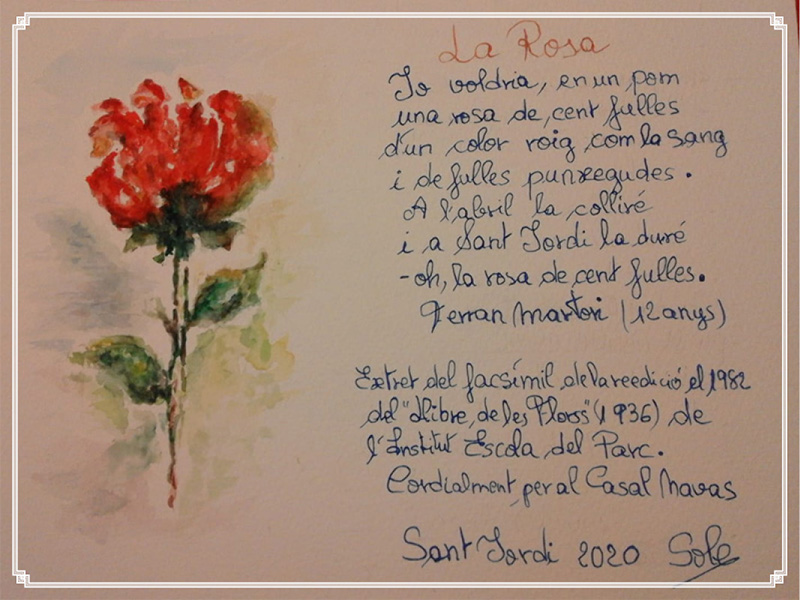 La Rosa
Jo voldria, en un pom
una rosa de cent fulles
d'un color roig com la sang
i de fulles punxegudes.
A l'abril la colliré
i a Sant Jordi la duré
-oh, la rosa de cent fulles.
Ferran Martori (12 anys)
Extret del facsímil de la reedició el 1982
del "Llibre de les Flors" (1936) de
l'Institut Escola del Parc.
Cordialment per al Casal Navas
Sant Jordi 2020 Solé